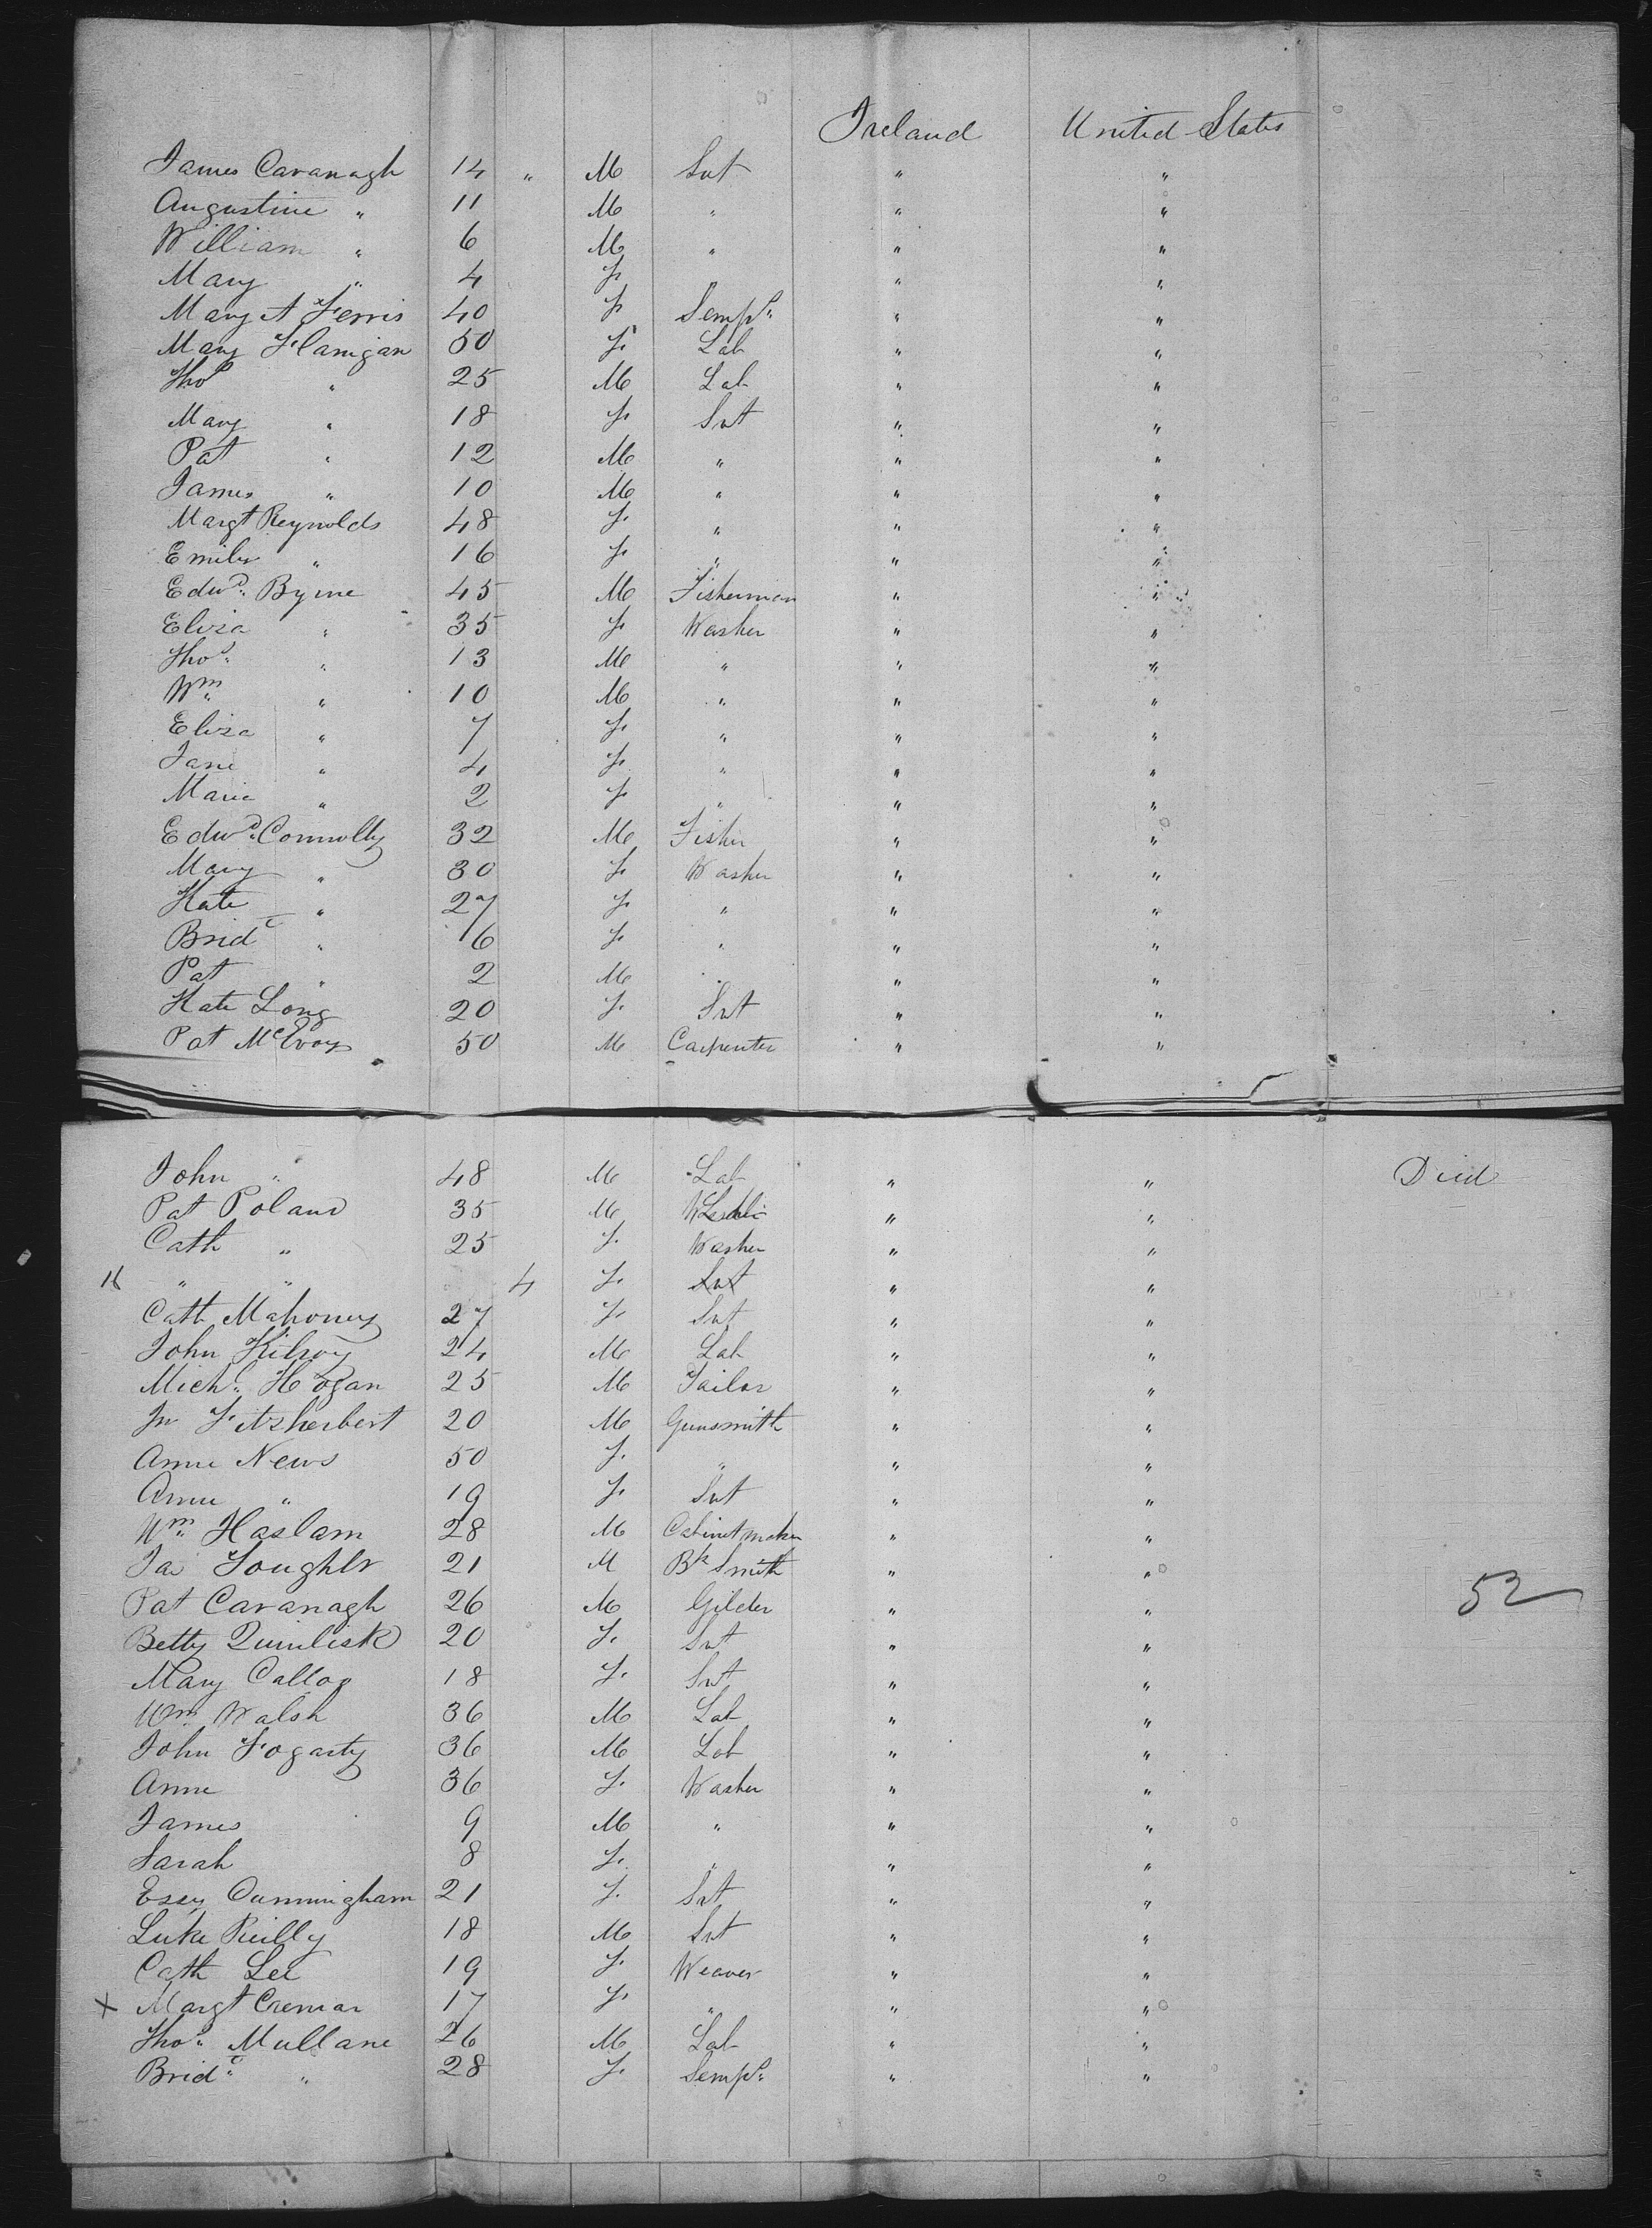 Ireland United States
James Cavanagh 14 " M Svt " "
Augustine " 11 M " " "
William " 6 M " " "
Mary " 4 F. " " "
Mary A Ferris 40 F Semps. " "
Mary Flanigan 50 F. Lab " "
Thos " 25 M Lab " "
Mary " 18 F. Svt " "
Pat " 12 M " " "
James " 10 M " " "
Margt Reynolds 48 F. " " "
Emily " 16 F. " " "
Edwd. Byrne 45 M Fisherman " "
Eliza " 35 F. Washer " "
Thos. " 13 M " " "
Wm " 10 M " " "
Eliza " 7 F. " " "
Jane " 4 F. " " "
Maria " 2 F " " "
Edwd. Connolly 32 M Fisher " "
Mary " 30 F. Washer " "
Kate " 27 F. " " "
Bridt " 16 F. " " "
Pat " 2 M " " "
Kate Long 20 F. Svt " "
Pat McEvoy 50 M Carpenter " "
John " 48 M Lab " " Died
Pat Poland 35 M " "
Cath " 25 F. Washer " "
" " 4 F. Svt " "
Cath Mahoney 27 F. Svt " "
John Kilroy 24 M Lab " "
Michl. Hogan 25 M Tailor " "
Jn Fitzherbert 20 M Gunsmith " "
Anne News 50 F. " " "
Anne " 19 F. Svt " "
Wm. Haslam 28 M Cabinetmaker " "
Ja 21 M Bk Smith " "
Pat Cavanagh 26 M Gilder " " 52
Betty Quinlisk 20 F. Svt " "
Mary 18 F. Svt " "
Wm. Walsh 36 M Lab " "
John Fogarty 36 M Lab " "
Anne 36 F. Washer " "
James 9 M " " "
Sarah 8 F. " " "
Essy Cunningham 21 F. Svt " "
Luke Reilly 18 M Svt " "
Cath Lee 19 F. Weaver " "
x Margt 17 F. " " "
Thos. Mullane 26 M Lab " "
Bridt. " 28 F. Semps. " "